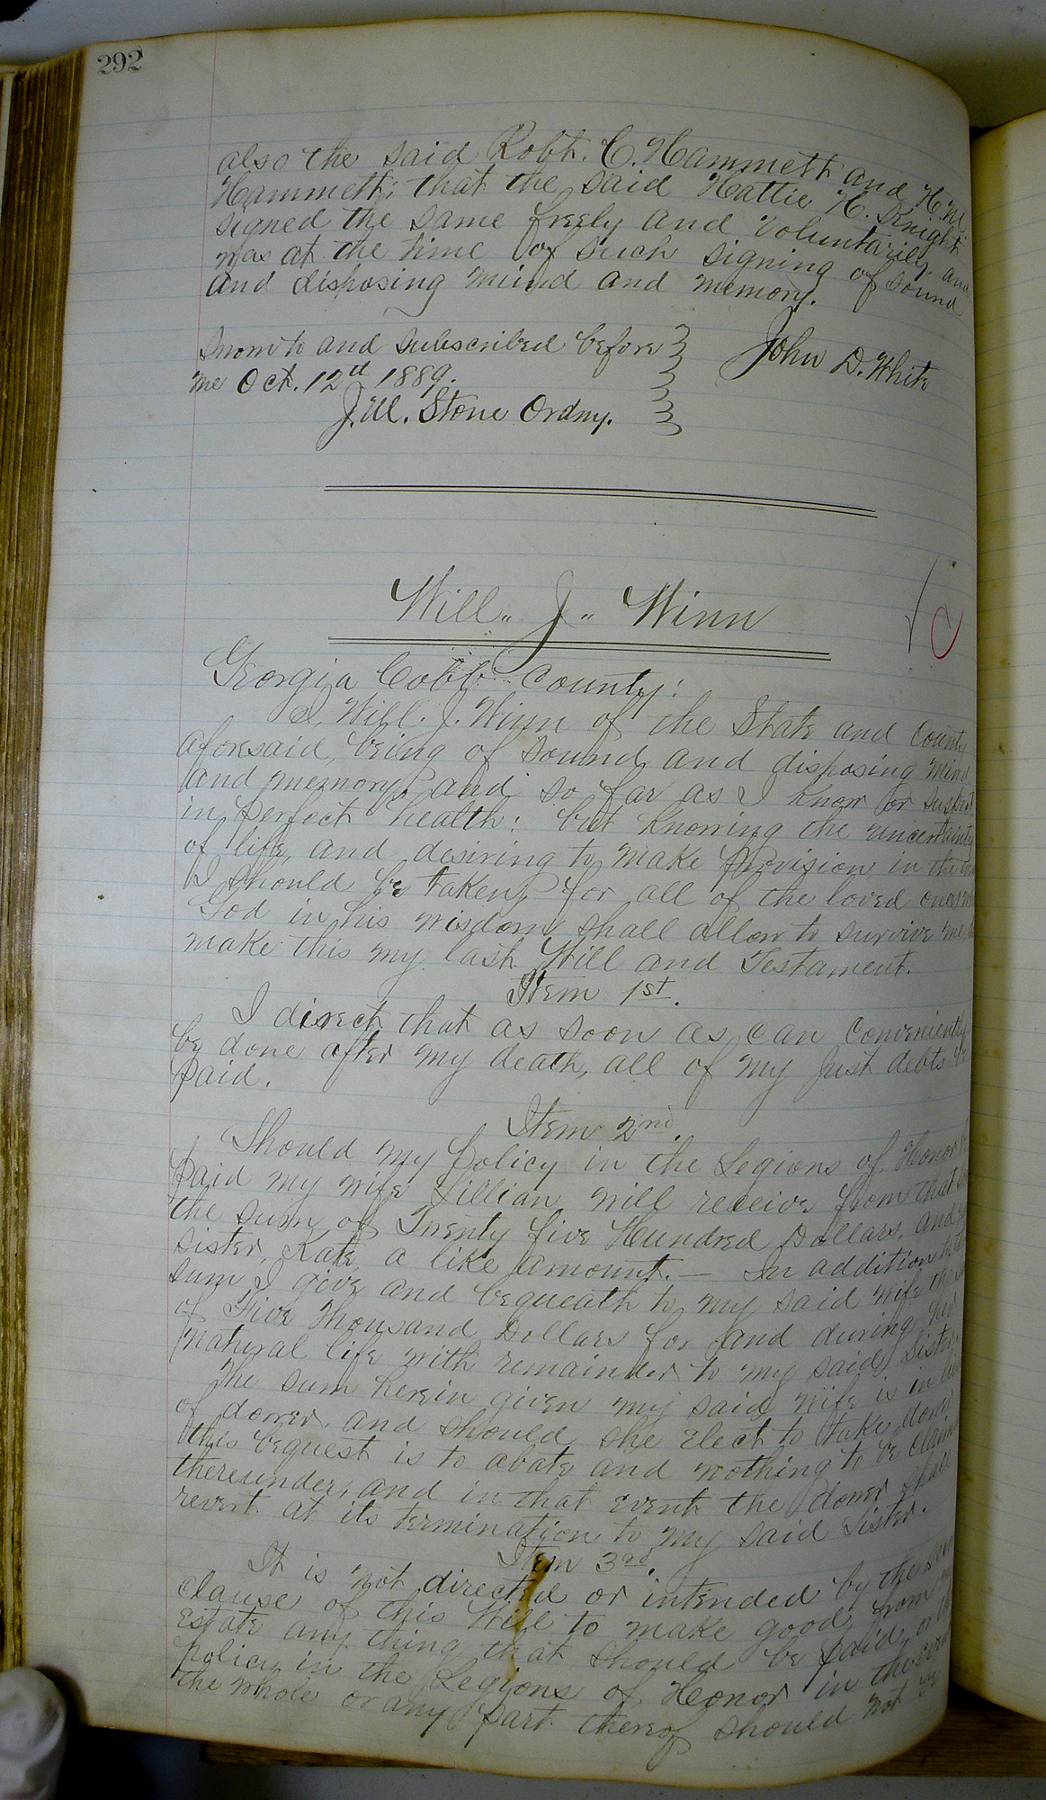 292
also the said Robt. C. Hammett and H. M.
Hammett; that the said Hattie H. Knight
signed the same freely and voluntarily and
was at the time of such signing of sound
and disposing mind and memory.
Sworn to and subscribed before
me Oct. 12th 1889.
John D. White
J. M. Stone Ordny.
Will. J. Winn
Georgia Cobb County:
I, Will. J. Winn of the State and County
aforesaid, being of sound and disposing mind
and memory, and so far as I know or suspect
in perfect health: but knowing the uncertainty
of life, and desiring to make provision in the
I should be taken, for all of the loved ones
God in his wisdom shall allow to survive me
make this my last Will and Testament.
Item 1st.
I direct that as soon as can conveniently
be done after my death, all of my just debts be
paid.
Item 2nd.
Should my policy in the Legions of Honor
paid my wife Lillian will receive from that
the sum of Twenty five Hundred Dollars, and
sister, Kate, a like amount. — In addition to
sum I give and bequeath to my said wife the
of Five Thousand Dollars for and during her
natural life with remainder to my said Sister.
The sum herein given my said wife is in lieu
of dower, and should she elect to take dower
this bequest is to abate and nothing to be claimed
thereunder, and in that event the dower shall
revert at its termination to my said Sister.
Item 3rd.
It is not directed or intended by the
clause of this Will to make good from
Estate any thing that should be paid on
policy in the Legions of Honor in the event
the whole or any part thereof should not be